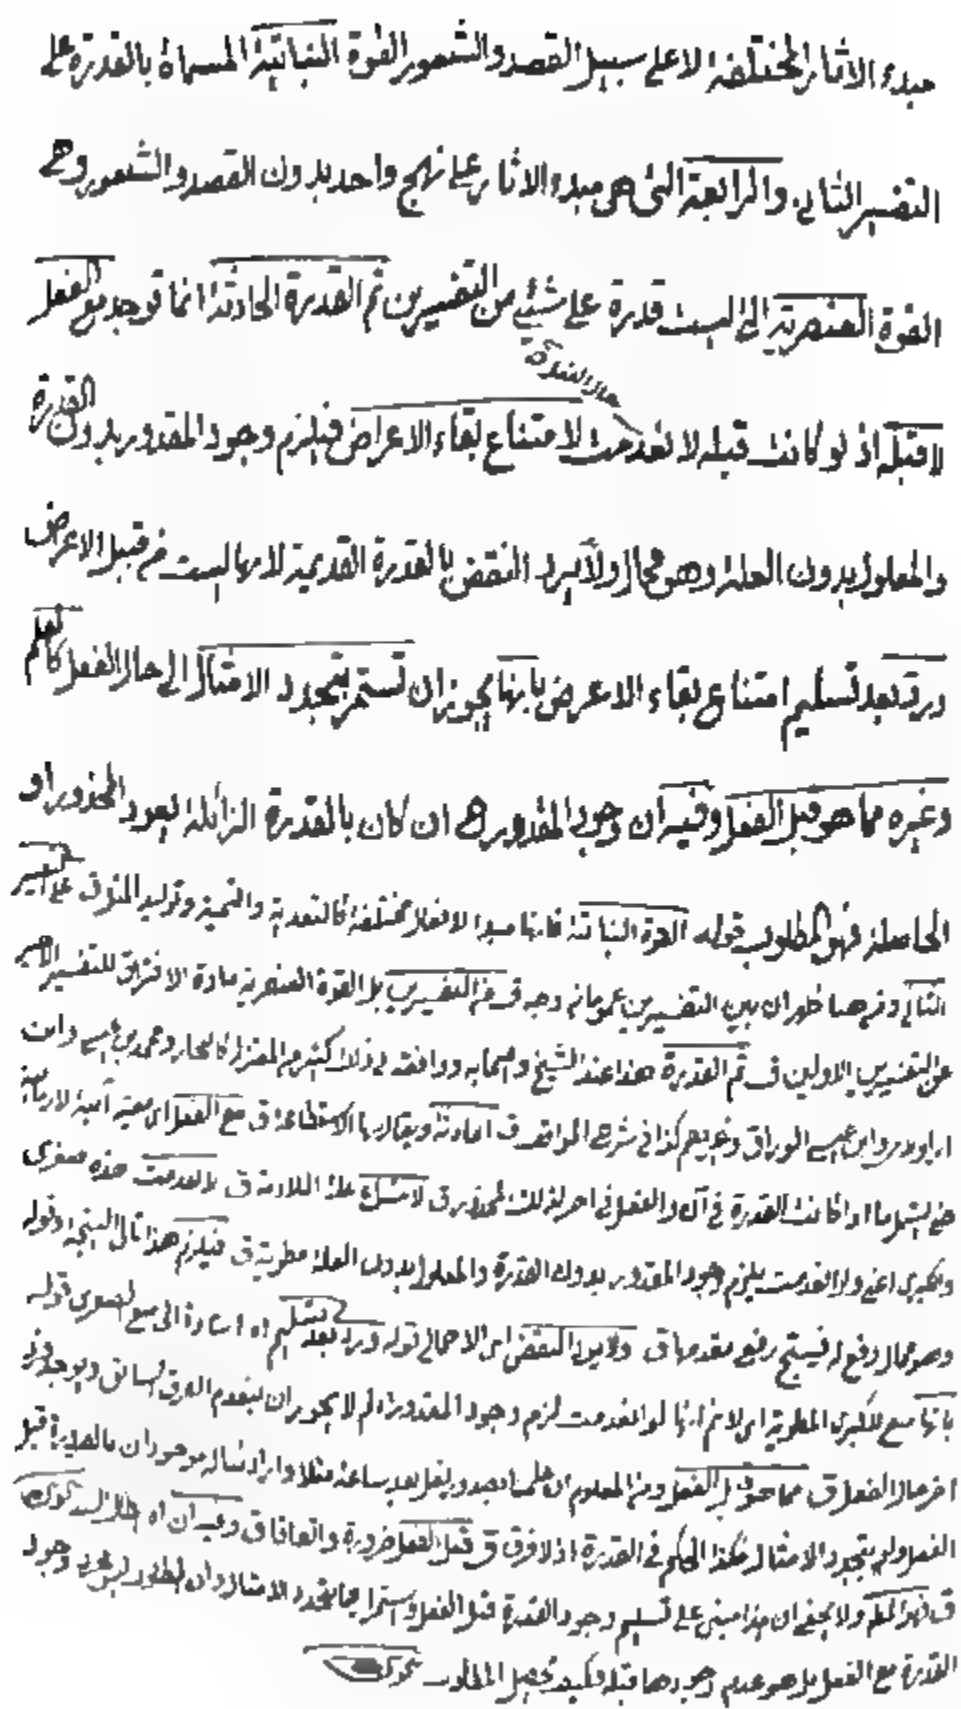 مبدء الاثار المختلفة لا على سبيل القصد والشعور القوة النباتية المسماة بالقدرة على
التفسير الثانى والرابعة التى هى مبدء الاثار على نهج واحد بدون القصد والشعور وهى
القوة العنصرية التى ليست قدرة على شئ من التفسيرين ثم القدرة الحادثة انما توجد مع الفعل
حال القدرة
لا قبله اذ لو كانت قبله لانعدمت لامتناع بقاء الاعراض فيلزم وجود المقدور بدون القدرة
والمعلول بدون العلة وهو محال ولا يرد النقض بالقدرة القديمة لانها ليست من قبيل الاعراض
ورد بعد تسليم امتناع بقاء الاعراض بانها يجوز ان تستمر بتجدد الامثال الى حال الفعل كالعلم
وغيره مما هو قبل الفعل وفيه ان وجود المقدور ح ان كان بالقدرة الزائلة يعود المحذور او
الحاصلة فهو المطلوب قوله القوة النباتية فانها مبدا لافعال مختلفة كالتغذية والتنمية وتوليد المثل ق على التفسير
الثانى ومن ههنا ظهر ان بين التفسيرين عموما من وجه ق من التفسيرين بل القوة العنصرية مادة الافتراق للتفسير الاخير
عن التفسيرين الاولين ق ثم القدرة هذا عند الشيخ واصحابه ووافقه فى ذلك كثير من المعتزلة كالنجار ومحمد بن عيسى وابن
الراوندى وابى عيسى الوراق وغيرهم كذا فى شرح المواقف ق الحادثة ويقال لها الاستطاعة ق مع الفعل اى معية آنية لا زمانية
حتى يشمل ما اذا كانت القدرة فى آن والفعل فى اخر لذلك المحذور ق لامتناع علة الملازمة ق لانعدمت هذه صغرى
والكبرى اعنى ولو انعدمت يلزم وجود المقدور بدون القدرة والمعلول بدون العلة مطوية ق فيلزم هذا تالى النتيجة وقوله
وهو محال رفع له فينتج رفع مقدمها ق ولا يرد النقض اى الاجمالى قوله ورد بعد تسليم اه اشارة الى منع الصغرى قوله
بانها منع للكبرى المطوية اى لا نم انها لو انعدمت لزم وجود المقدور اه لم لا يجوز ان ينعدم الفرد السابق ويوجد فرد
اخر حال الفعل ق مما هو قبل الفعل ومن المعلوم ان
الفعل ولو بتجدد الامثال فكذا الحكم فى القدرة اذ لا فرق ق قبل الفعل ضرورة واتفاقا ق وفيه ان اه
ق فهو المطلوب ولا يخفى ان هذا مبنى على تسليم وجود القدرة قبل الفعل واستمرارها بتجدد الامثال وان المطلوب ليس مجرد وجود
القدرة مع الفعل بل هو عدم وجودها قبله فكيف يحصل المطلوب